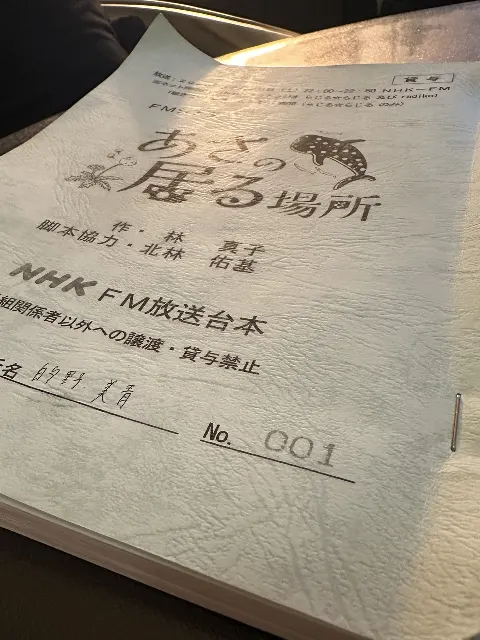 貸与
放送:20
22:00~22:50 NHK-FM
らじるらじる 及び radiko)
(らじるらじる のみ)
FM
あざの
居る場所
作・林 真子
脚本協力・北林 佑基
NHK FM放送台本
組関係者以外への譲渡・貸与禁止
氏名 的野 美青
No. 001